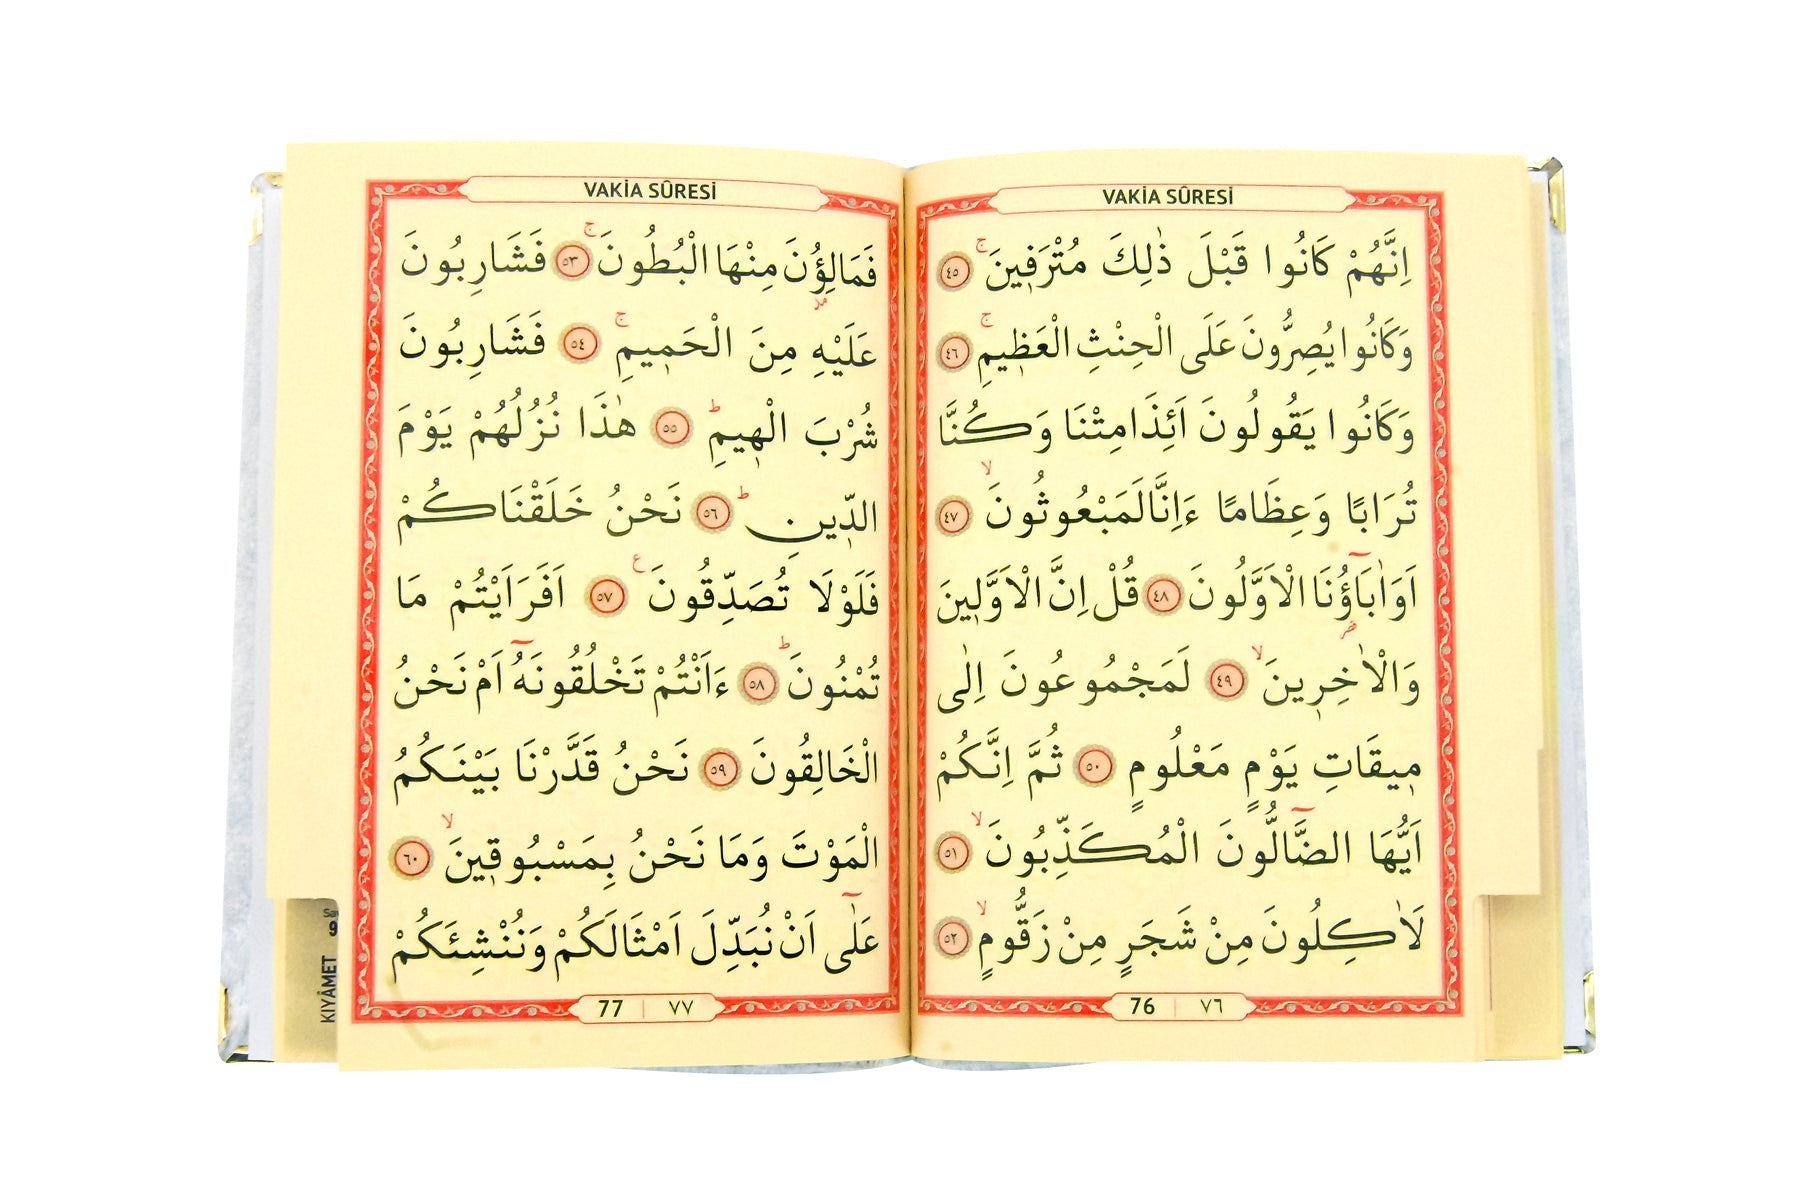 VAKİA SÛRESİ
اِنَّهُمْ كَانُوا قَبْلَ ذٰلِكَ مُتْرَفٖينَۚ ﴿٤٥﴾
وَكَانُوا يُصِرُّونَ عَلَى الْحِنْثِ الْعَظٖيمِۚ ﴿٤٦﴾
وَكَانُوا يَقُولُونَ اَئِذَا مِتْنَا وَكُنَّا
تُرَابًا وَعِظَامًا ءَاِنَّا لَمَبْعُوثُونَۙ ﴿٤٧﴾
اَوَاٰبَٓاؤُنَا الْاَوَّلُونَ ﴿٤٨﴾ قُلْ اِنَّ الْاَوَّلٖينَ
وَالْاٰخِرٖينَۙ ﴿٤٩﴾ لَمَجْمُوعُونَ اِلٰى
مٖيقَاتِ يَوْمٍ مَعْلُومٍ ﴿٥٠﴾ ثُمَّ اِنَّكُمْ
اَيُّهَا الضَّٓالُّونَ الْمُكَذِّبُونَۙ ﴿٥١﴾
لَاٰكِلُونَ مِنْ شَجَرٍ مِنْ زَقُّومٍۙ ﴿٥٢﴾
76 | ٧٦
VAKİA SÛRESİ
فَمَالِؤُنَ مِنْهَا الْبُطُونَۚ ﴿٥٣﴾ فَشَارِبُونَ
عَلَيْهِ مِنَ الْحَمٖيمِۚ ﴿٥٤﴾ فَشَارِبُونَ
شُرْبَ الْهٖيمِۜ ﴿٥٥﴾ هٰذَا نُزُلُهُمْ يَوْمَ
الدّٖينِۜ ﴿٥٦﴾ نَحْنُ خَلَقْنَاكُمْ
فَلَوْلَا تُصَدِّقُونَ ﴿٥٧﴾ اَفَرَاَيْتُمْ مَا
تُمْنُونَۜ ﴿٥٨﴾ ءَاَنْتُمْ تَخْلُقُونَهُٓ اَمْ نَحْنُ
الْخَالِقُونَ ﴿٥٩﴾ نَحْنُ قَدَّرْنَا بَيْنَكُمُ
الْمَوْتَ وَمَا نَحْنُ بِمَسْبُوقٖينَۙ ﴿٦٠﴾
عَلٰٓى اَنْ نُبَدِّلَ اَمْثَالَكُمْ وَنُنْشِئَكُمْ
77 | ٧٧
KIYÂMET